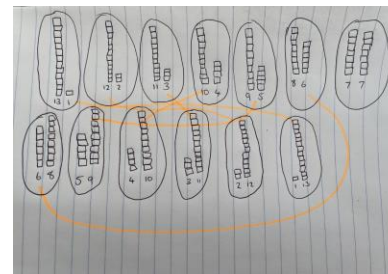 13 1 12 2 11 3 10 4 9 5 8 6 7 7
6 8 5 9 4 10 3 11 2 12 1 13